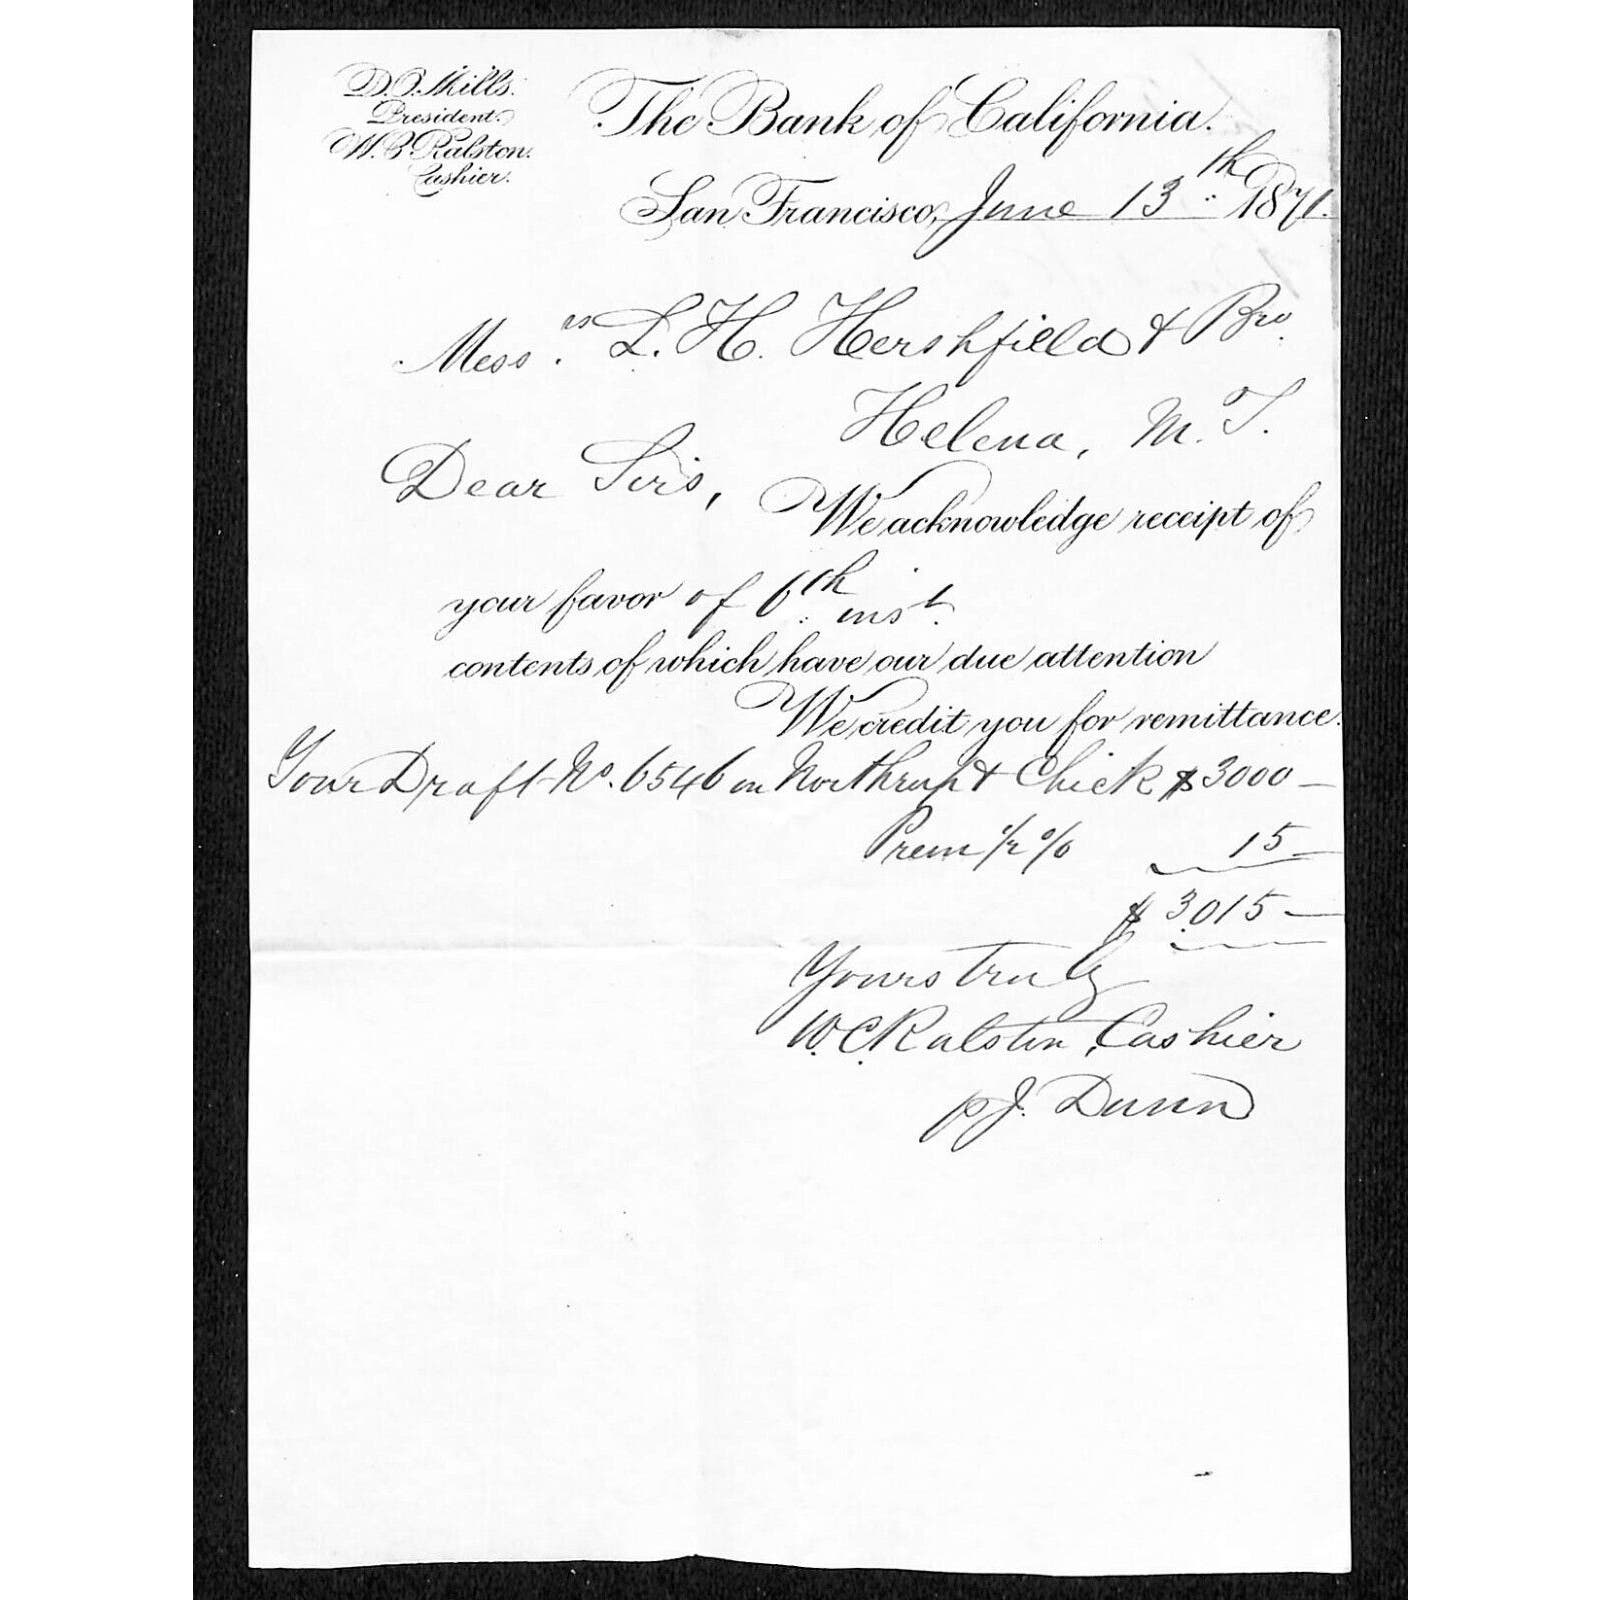 D. O. Mills.
President.
W. C. Ralston.
Cashier.
The Bank of California.
San Francisco, June 13th 1871.
Messrs L. H. Hershfield & Bro.
Helena, M. T.
Dear Sirs,
We acknowledge receipt of
your favor of 6th inst.
contents of which have our due attention
We credit you for remittance.
Your Draft No. 6546 on Northrup & Chick $3000 —
Prem 1/2 % 15 —
$3,015 —
Yours truly
W. C. Ralston, Cashier
p J. Dunn